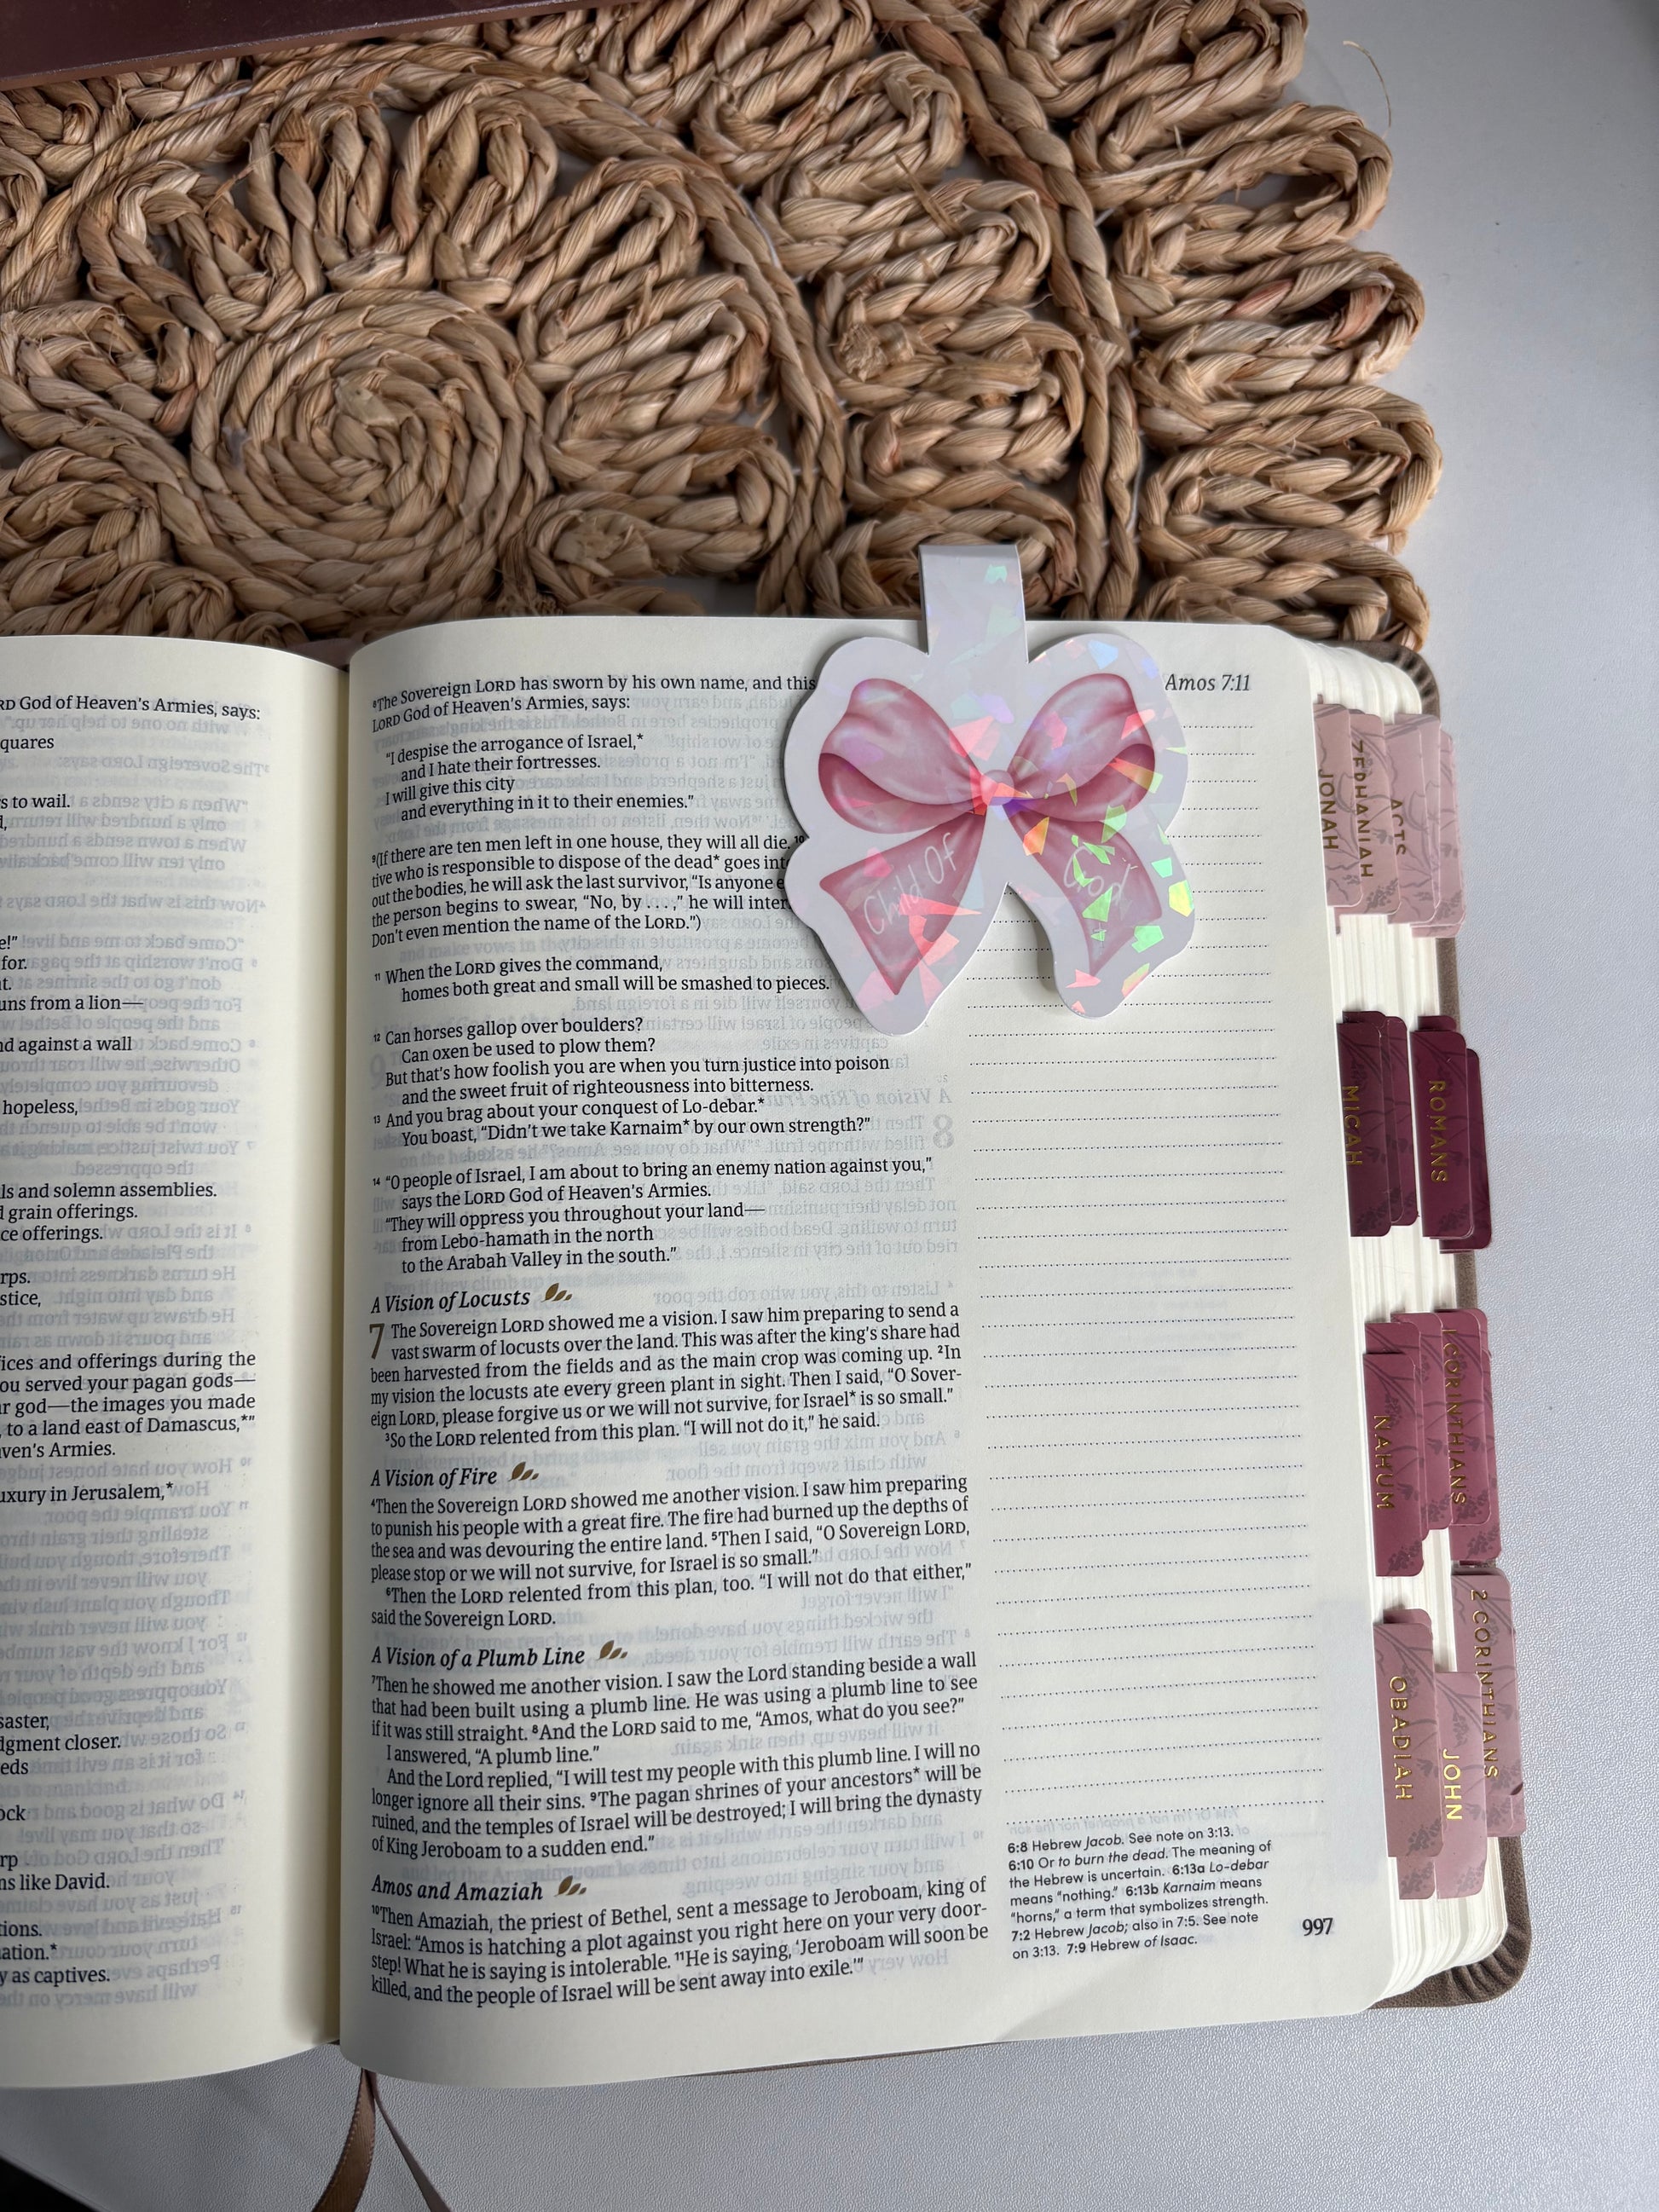 RD God of Heaven's Armies, says:
quares
s to wail.
e!"
for.
uns from a lion—
nd against a wall
hopeless,
ls and solemn assemblies.
d grain offerings.
ce offerings.
rps.
stice,
ices and offerings during the
ou served your pagan gods—
r god—the images you made
, to a land east of Damascus,*"
ven's Armies.
uxury in Jerusalem,*
saster,
dgment closer.
eds
ock
rp
ns like David.
tions.
ation.*
y as captives.
Amos 7:11
⁸The Sovereign LORD has sworn by his own name, and this
LORD God of Heaven's Armies, says:
"I despise the arrogance of Israel,*
and I hate their fortresses.
I will give this city
and everything in it to their enemies."
⁹(If there are ten men left in one house, they will all die. ¹⁰
tive who is responsible to dispose of the dead* goes int
out the bodies, he will ask the last survivor, "Is anyone e
the person begins to swear, "No, by . . . ," he will inter
Don't even mention the name of the LORD.")
¹¹ When the LORD gives the command,
homes both great and small will be smashed to pieces.
¹² Can horses gallop over boulders?
Can oxen be used to plow them?
But that's how foolish you are when you turn justice into poison
and the sweet fruit of righteousness into bitterness.
¹³ And you brag about your conquest of Lo-debar.*
You boast, "Didn't we take Karnaim* by our own strength?"
¹⁴ "O people of Israel, I am about to bring an enemy nation against you,"
says the LORD God of Heaven's Armies.
"They will oppress you throughout your land—
from Lebo-hamath in the north
to the Arabah Valley in the south."
A Vision of Locusts
7 The Sovereign LORD showed me a vision. I saw him preparing to send a
vast swarm of locusts over the land. This was after the king's share had
been harvested from the fields and as the main crop was coming up. ²In
my vision the locusts ate every green plant in sight. Then I said, "O Sover-
eign LORD, please forgive us or we will not survive, for Israel* is so small."
³So the LORD relented from this plan. "I will not do it," he said.
A Vision of Fire
⁴Then the Sovereign LORD showed me another vision. I saw him preparing
to punish his people with a great fire. The fire had burned up the depths of
the sea and was devouring the entire land. ⁵Then I said, "O Sovereign LORD,
please stop or we will not survive, for Israel is so small."
⁶Then the LORD relented from this plan, too. "I will not do that either,"
said the Sovereign LORD.
A Vision of a Plumb Line
⁷Then he showed me another vision. I saw the Lord standing beside a wall
that had been built using a plumb line. He was using a plumb line to see
if it was still straight. ⁸And the LORD said to me, "Amos, what do you see?"
I answered, "A plumb line."
And the Lord replied, "I will test my people with this plumb line. I will no
longer ignore all their sins. ⁹The pagan shrines of your ancestors* will be
ruined, and the temples of Israel will be destroyed; I will bring the dynasty
of King Jeroboam to a sudden end."
Amos and Amaziah
¹⁰Then Amaziah, the priest of Bethel, sent a message to Jeroboam, king of
Israel: "Amos is hatching a plot against you right here on your very door-
step! What he is saying is intolerable. ¹¹He is saying, 'Jeroboam will soon be
killed, and the people of Israel will be sent away into exile.'"
Child Of
God
6:8 Hebrew Jacob. See note on 3:13.
6:10 Or to burn the dead. The meaning of
the Hebrew is uncertain. 6:13a Lo-debar
means "nothing." 6:13b Karnaim means
"horns," a term that symbolizes strength.
7:2 Hebrew Jacob; also in 7:5. See note
on 3:13. 7:9 Hebrew of Isaac.
997
JONAH
ZEPHANIAH
ACTS
MICAH
ROMANS
NAHUM
1 CORINTHIANS
OBADIAH
JOHN
2 CORINTHIANS